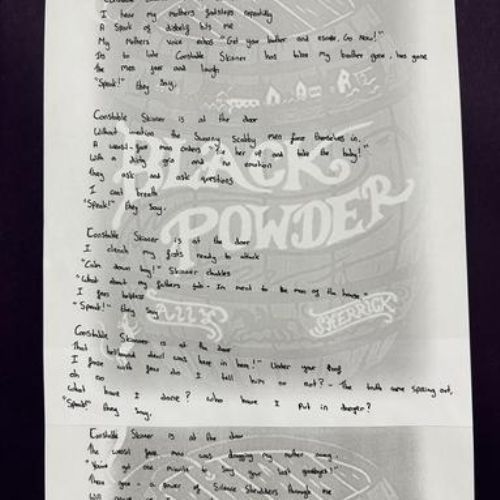 Constable Skinner is at the door
I hear my mothers footsteps repeatedly
A Spark of disbelief hits me
My Mothers voice echos "Get your brother and escape. Go Now!"
Its to late Constable Skinner has taken my brother gone, has gone
The men jeer and laugh
"Speak!" they say.
Constable Skinner is at the door
Without invation the Swarmy Scabby men force themselves in.
A weasel-face man orders "Tie her up and take the baby!"
With a dirty grin and no emotion
they ask and ask questions
I cant breath
"Speak!" they Say.
Constable Skinner is at the door
I clench my fists ready to attack
"Calm down boy!" Skinner chuckles
"What about my fathers job - Im meant to be man of the house"
I feel helpless
"Speak!" they say
Constable Skinner is at the door
That devil was here in" Under your
I froze with fear do I tell him or not? - The truth came spilling out,
oh no
what have I done? who have I Put in danger?
"Speak!" they Say.
Constable Skinner is at the door
The weasel face man was dragging my mother away.
"You've got one minute to Say your last goodbyes!"
There goes - a power of Silence Shudders through me
BLACK
POWDER
ALLY
SHERRICK